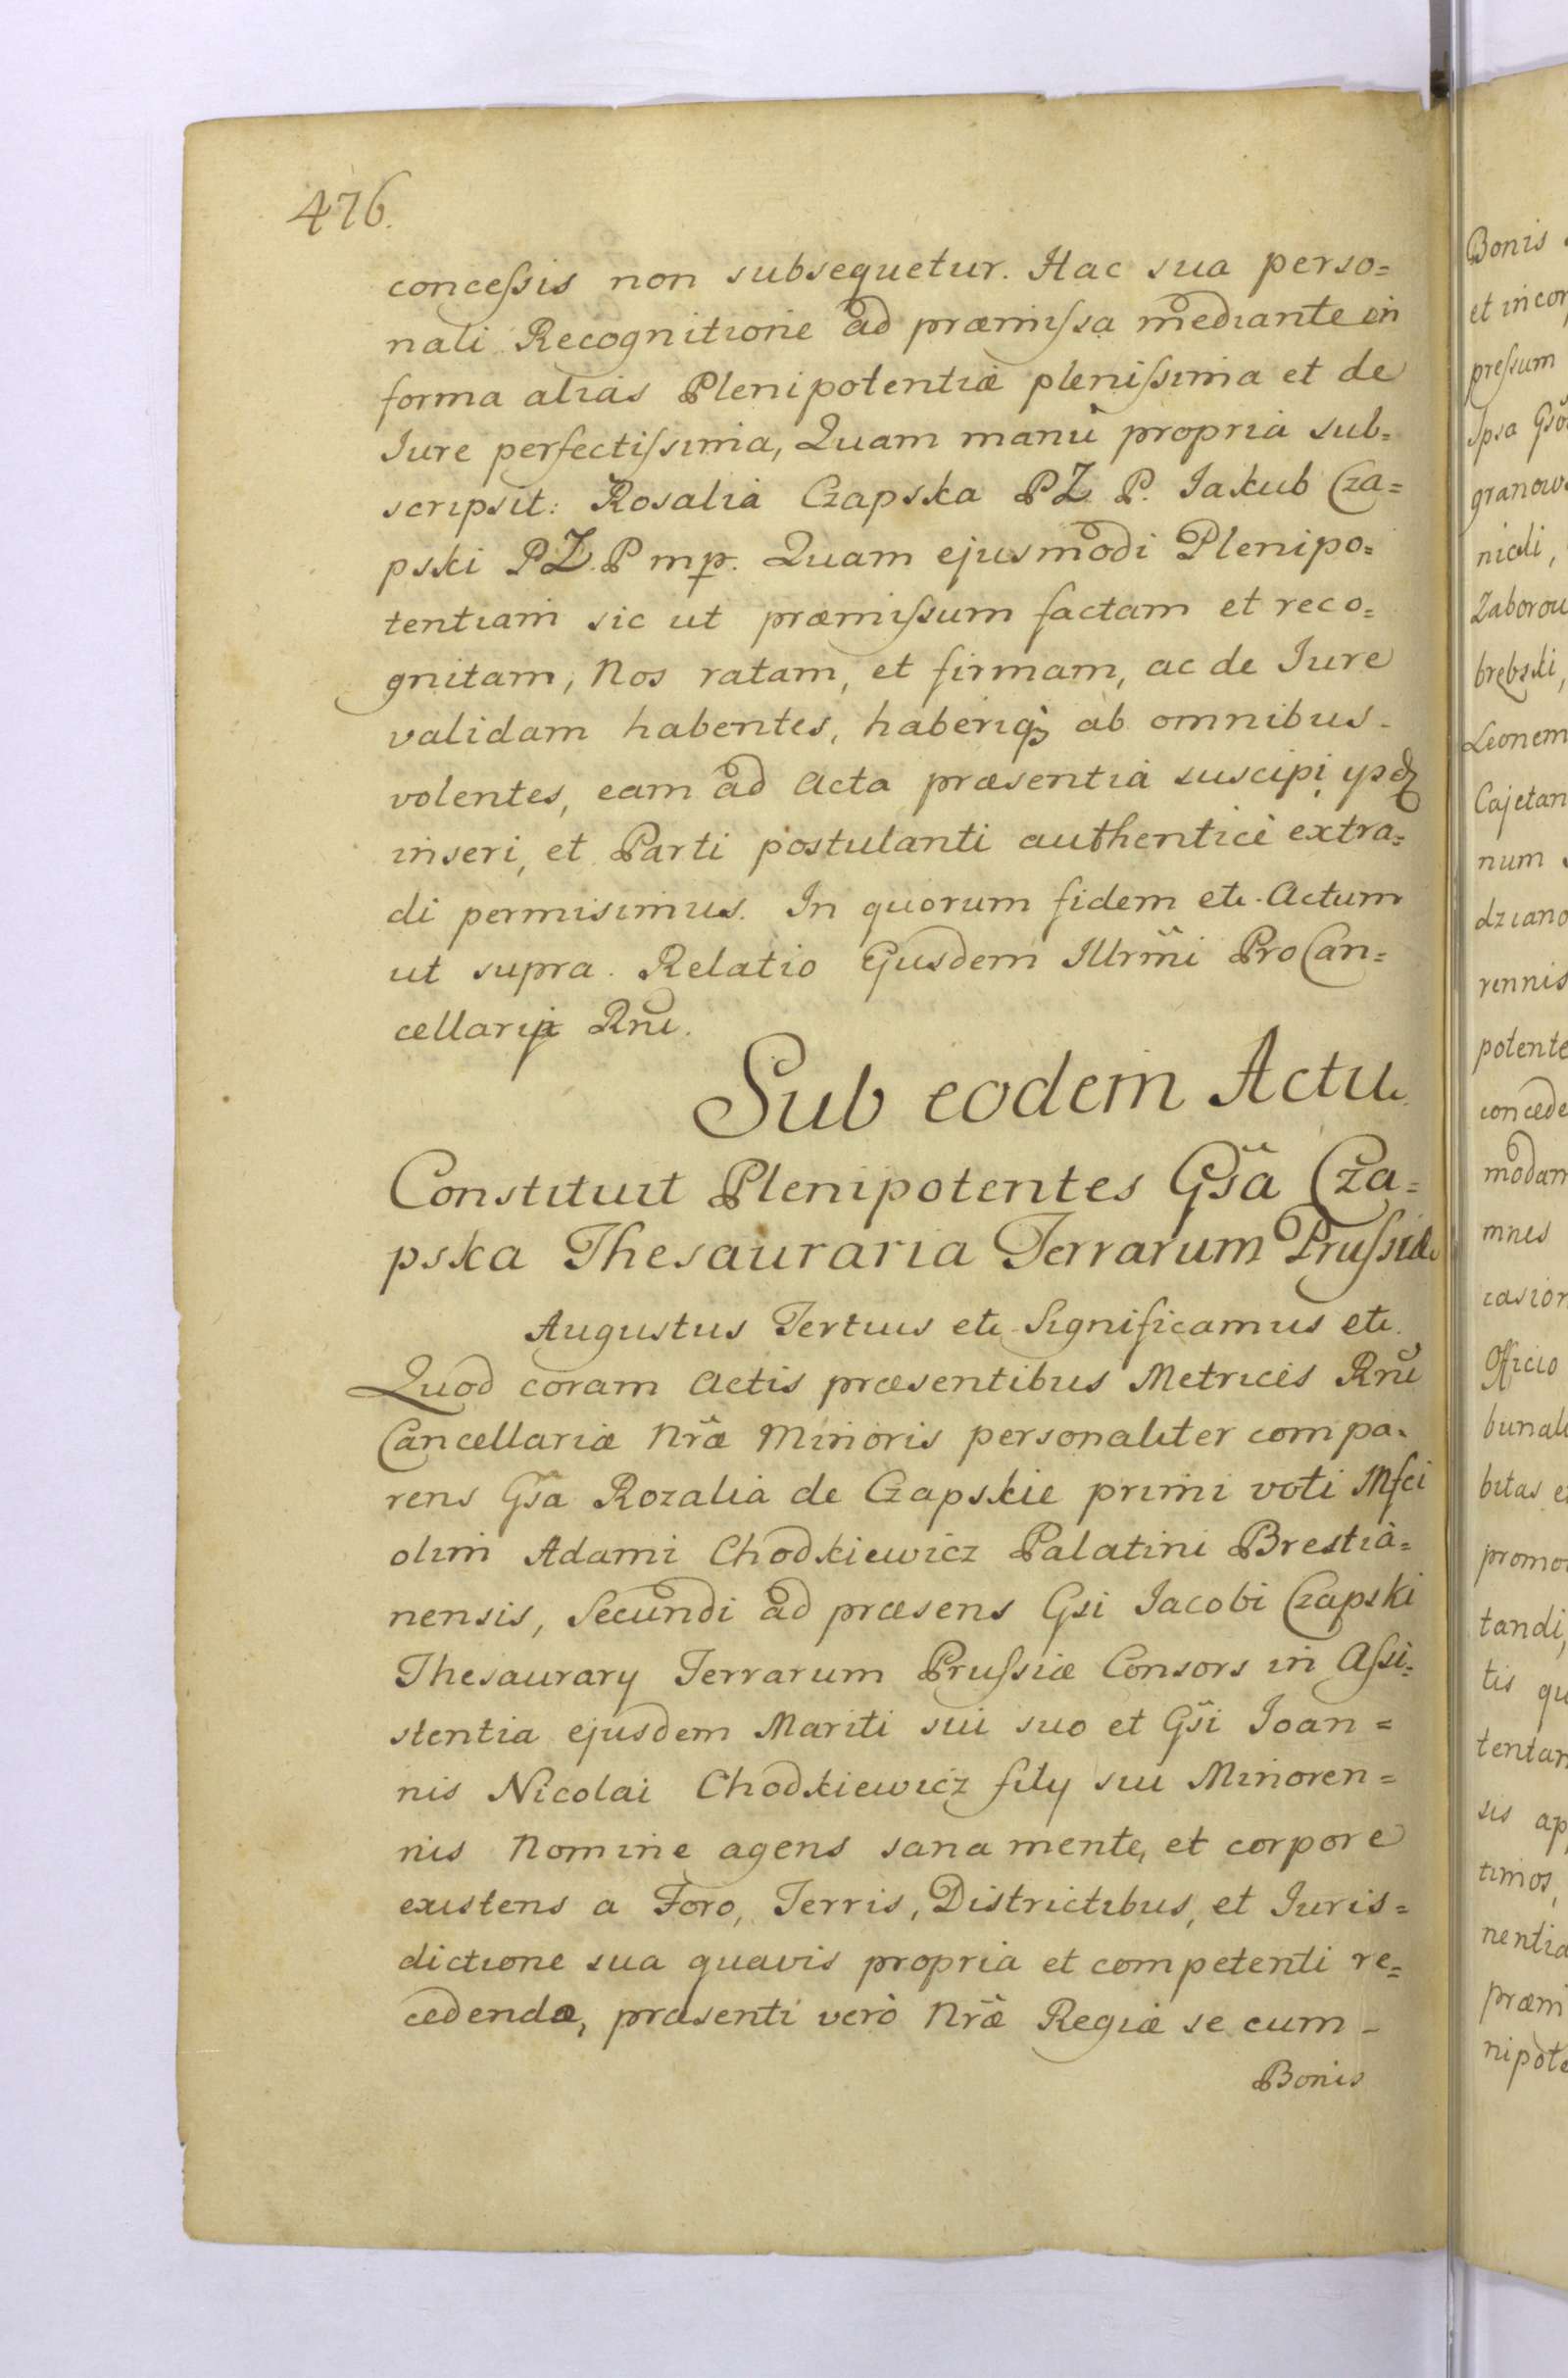 476.
concessis non subsequetur. Hac sua perso=
nali Recognitione ad præmissa mediante in
forma aliàs Plenipotentiæ plenissima et de
Iure perfectissima, Quam manù propria sub=
scripsit: Rosalia Czapska PZ P. Iakub Cza=
pski PZ. P mp. Quam ejusmodi Plenipo=
tentiam sic ut præmissum factam et reco=
gnitam, Nos ratam, et firmam, ac de Iure
validam habentes, haberiq; ab omnibus
volentes, eam ad Acta præsentia suscipi,
inseri, et Parti postulanti authenticè extra=
di permisimus. In quorum fidem etc. Actum
ut supra. Relatio Ejusdem Illrmi ProCan=
cellarij Rni.
Sub eodem Actu.
Constituit Plenipotentes Gsa Cza=
pska Thesauraria Terrarum Prussiæ
Augustus Tertius etc. Significamus etc.
Quod coram Actis præsentibus Metrices Rni
Cancellariæ Nræ Minoris personaliter compa=
rens Gsa Rozalia de Czapskie primi voti Mfci
olim Adami Chodkiewicz Palatini Brestia=
nensis, Secundi ad præsens Gsi Iacobi Czapski
Thesaurary Terrarum Prussiæ Consors in Assi=
stentia ejusdem Mariti sui suo et Gsi Ioan=
nis Nicolai Chodkiewicz fily sui Minoren=
nis Nomine agens sana mente, et corpore
existens a Foro, Terris, Districtibus, et Iuris=
dictione sua quavis propria et competenti re=
cedendo, præsenti verò Nræ Regiæ se cum
Bonis
Bonis
et incor
pressum
Ipsa
granow
nicki,
Zaborow
Leonem
Cajetan
num
dziano
rennis
potente
concede
modam
mnes
casion
Officio
bunali
bitas e
promo
tandi,
tis qu
tentan
sis ap
timos,
nentia
præm
nipote